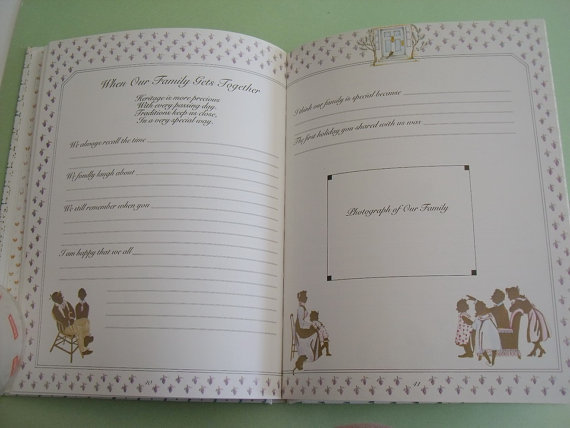 When Our Family Gets Together
Heritage is more precious
With every passing day.
Traditions keep us close,
In a very special way.
We always recall the time
We fondly laugh about
We still remember when you
I am happy that we all
10
I think our family is special because
The first holiday you shared with us was
Photograph of Our Family
11